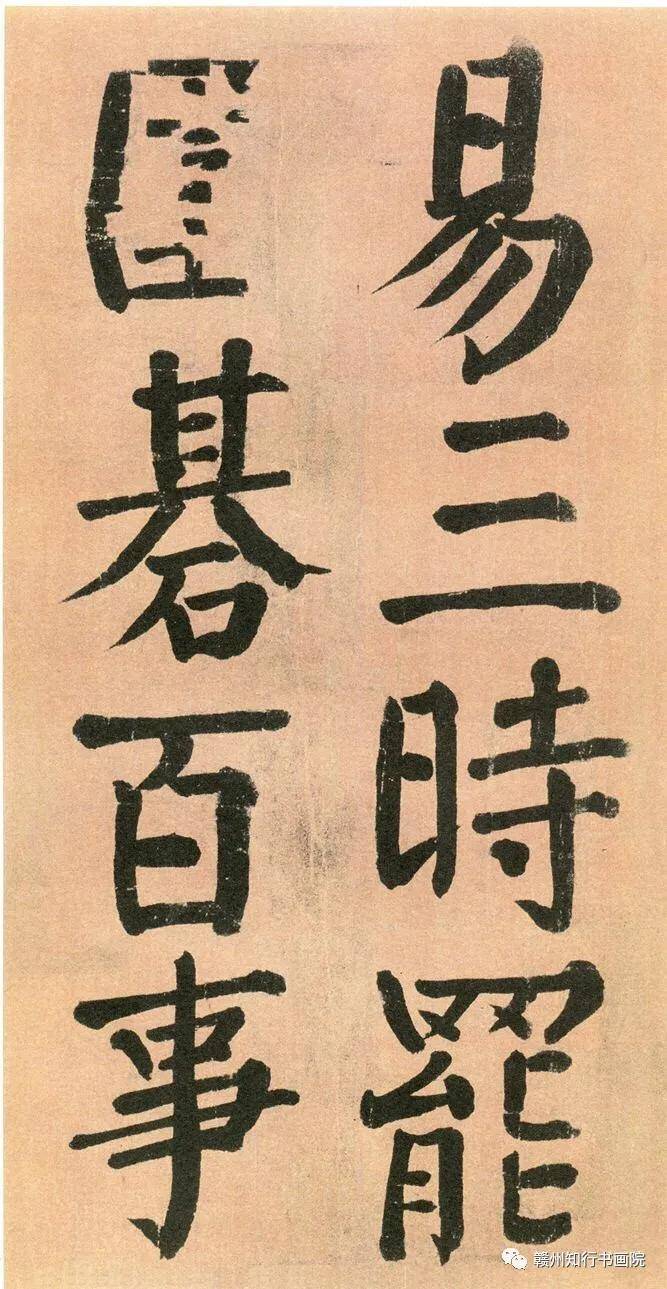 易三時罷
圍碁百事
赣州知行书画院